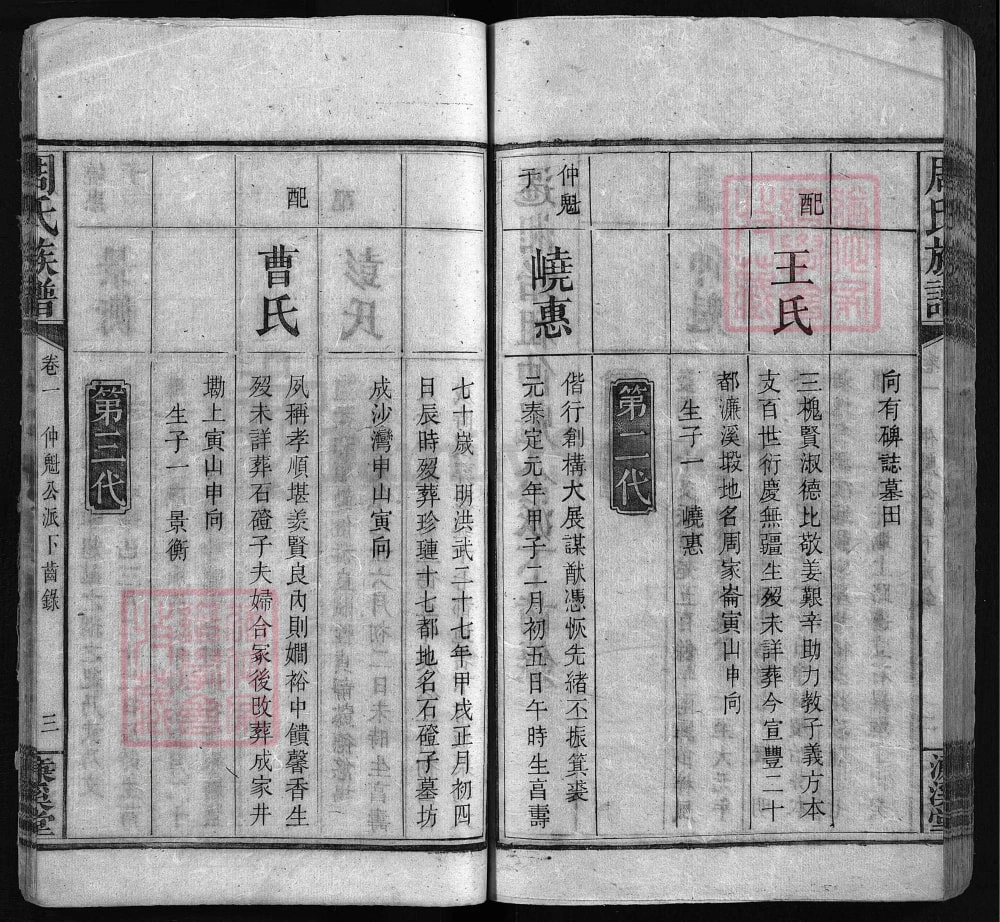 周氏族譜
向有碑誌墓田
配
王氏
三槐賢淑德比敬姜艱辛助力教子義方本
支百世衍慶無疆生歿未詳葬今宣豐二十
都濂溪塅地名周家崙寅山申向
生子一 嶢惠
第二代
仲魁
子
嶢惠
偕行創構大展謀猷憑恢先緒丕振箕裘
元泰定元年甲子二月初五日午時生享壽
七十歲 明洪武二十七年甲戌正月初四
日辰時歿葬珍璉十七都地名石磴子墓坊
成沙灣申山寅向
配
曹氏
夙稱孝順堪羨賢良內則嫺裕中饋馨香生
歿未詳葬石磴子夫婦合冢後改葬成家井
墈上寅山申向
生子一 景衡
第三代
周氏族譜
卷一 仲魁公派下齒錄
三
濂溪堂